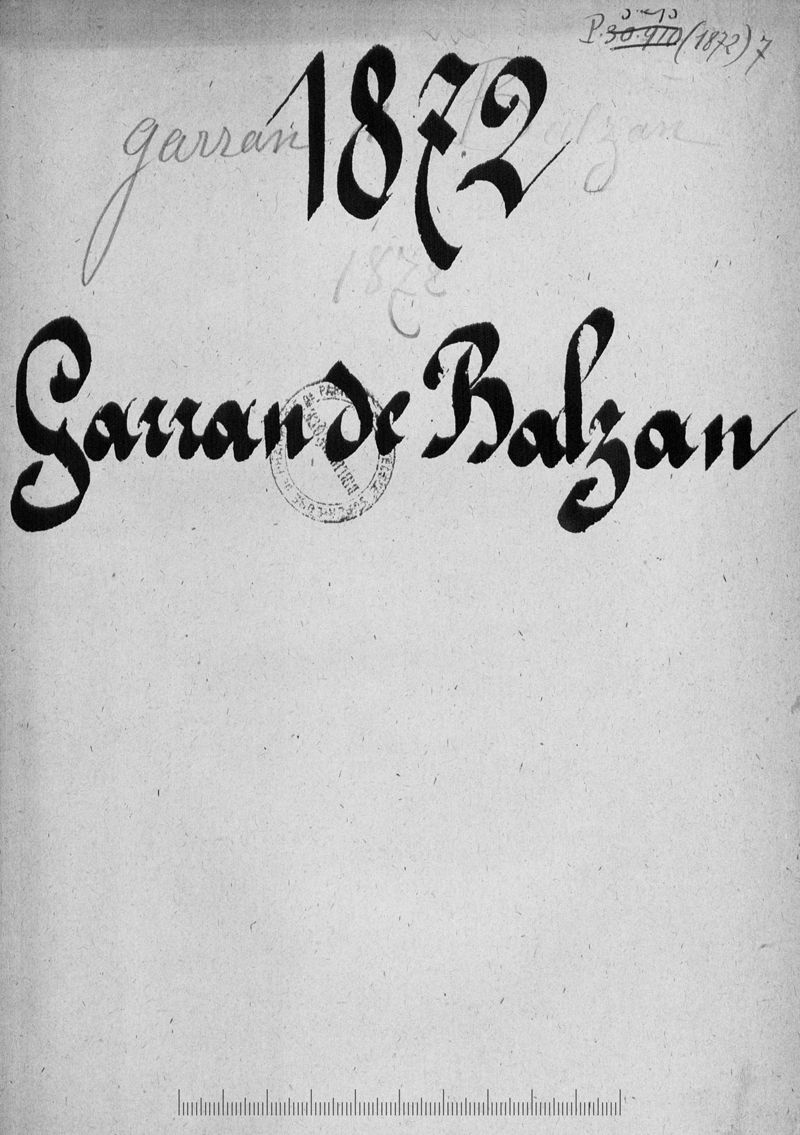 (1872) 7
1872
garran Balzan
1872
Garran de Balzan